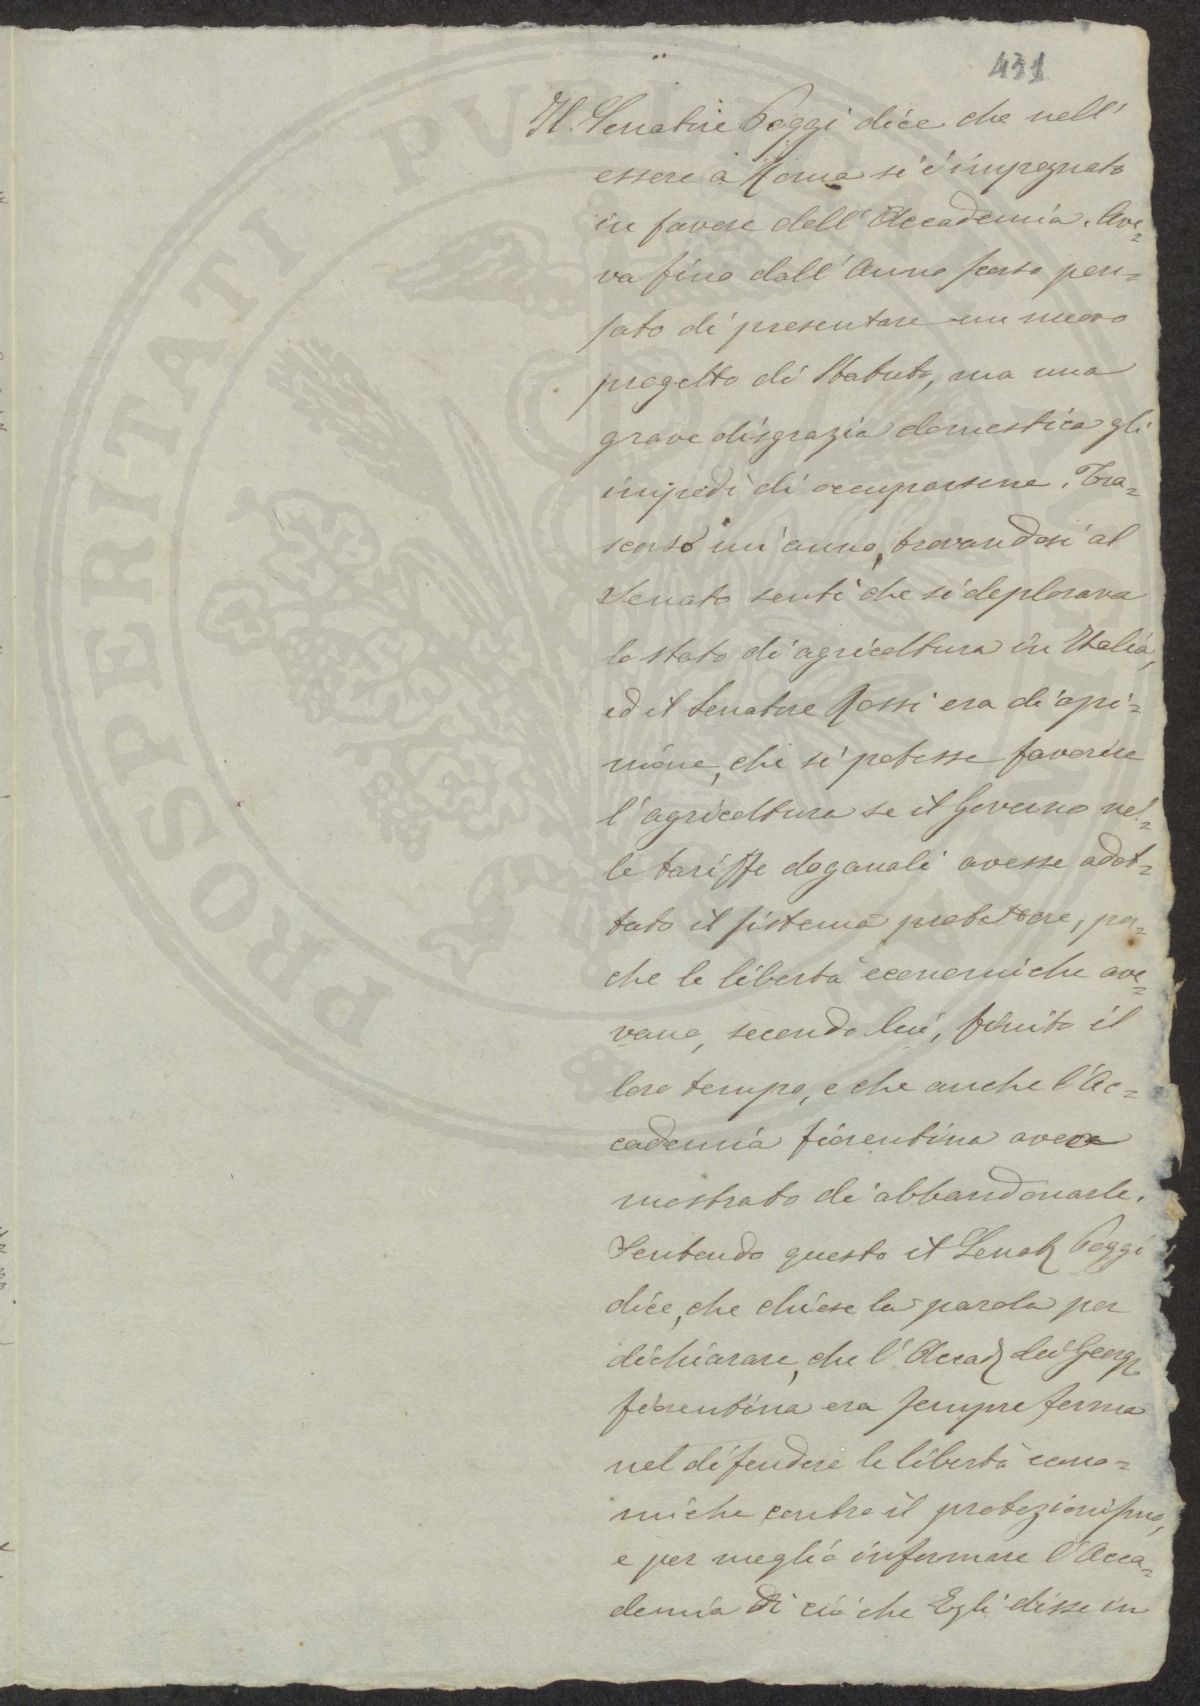 431
Il Senatore Poggi dice che nell'
essere a Roma si è impegnato
in favore dell'Accademia. Ave=
va fino dall'Anno scorso pen=
sato di presentare un nuovo
progetto di Statuto, ma una
grave disgrazia domestica gli
impedì di occuparsene. Tra=
scorso un'anno, trovandosi al
Senato sentì che si deplorava
lo stato di agricoltura in Italia,
ed il Senatore Rossi era di opi=
nione, che si potesse favorire
l'agricoltura se il Governo nel=
le tariffe doganali avesse adot=
tato il sistema protettore, per=
che le libertà economiche ave=
vano, secondo lui, finito il
loro tempo, e che anche l'Ac=
cademia fiorentina aveva
mostrato di abbandonarle.
Sentendo questo il Senat. Poggi
dice, che chiese la parola per
dichiarare, che l'Accad. dei Georg.
fiorentina era sempre ferma
nel difendere le libertà econo=
miche contro il protezionismo,
e per meglio informare l'Acca=
demia di ciò che Egli disse in
PROSPERITATI PVBLICAE